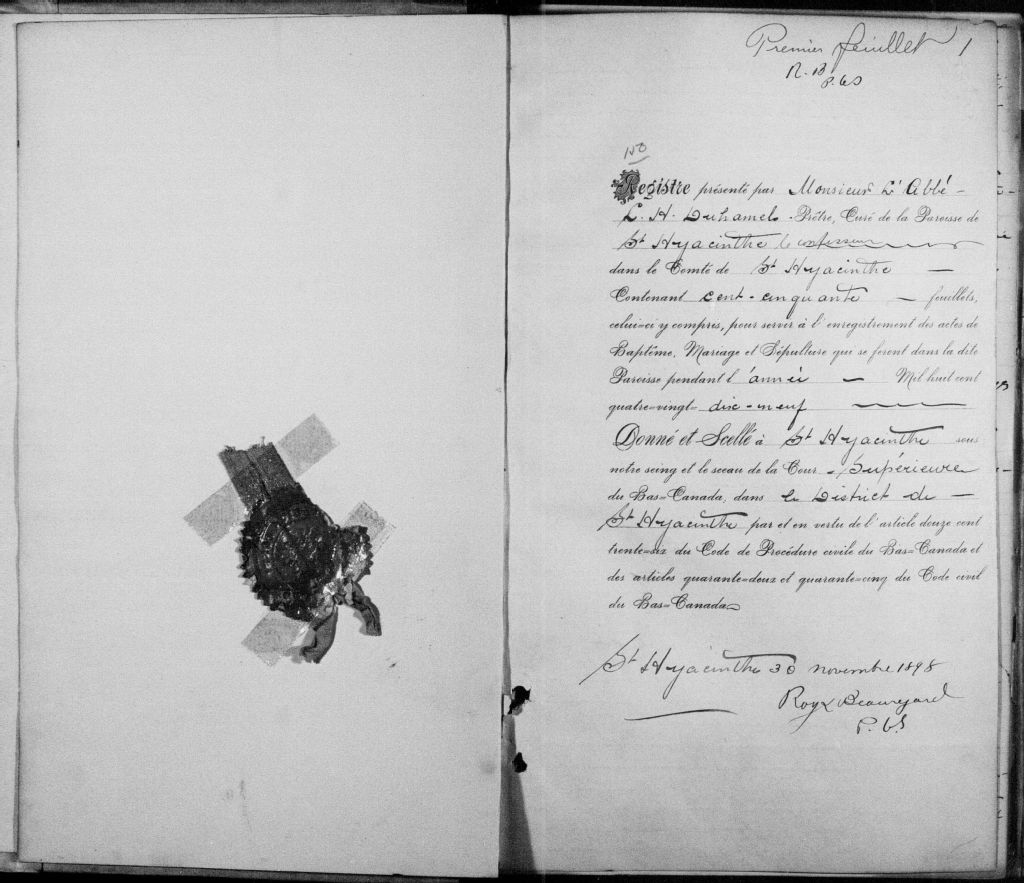 Premier feuillet 1
R. B
P. C S
150
Registre présenté par Monsieur L'Abbé -
L. H. Duhamel - Prêtre, Curé de la Paroisse de
St Hyacinthe le confesseur
dans le Comté de St Hyacinthe —
Contenant cent-cinquante — feuillets,
celui=ci y compris, pour servir à l'enregistrement des actes de
Baptême, Mariage et Sépulture qui se feront dans la dite
Paroisse pendant l'année — Mil huit cent
quatre=vingt= dix-neuf —
Donné et Scellé à St Hyacinthe sous
notre seing et le sceau de la Cour - Supérieure
du Bas=Canada, dans le District de —
St Hyacinthe par et en vertu de l'article douze cent
trente=six du Code de Procédure civile du Bas=Canada et
des articles quarante=deux et quarante=cinq du Code civil
du Bas=Canada
St Hyacinthe 30 novembre 1898
Roy & Beauregard
P. C S